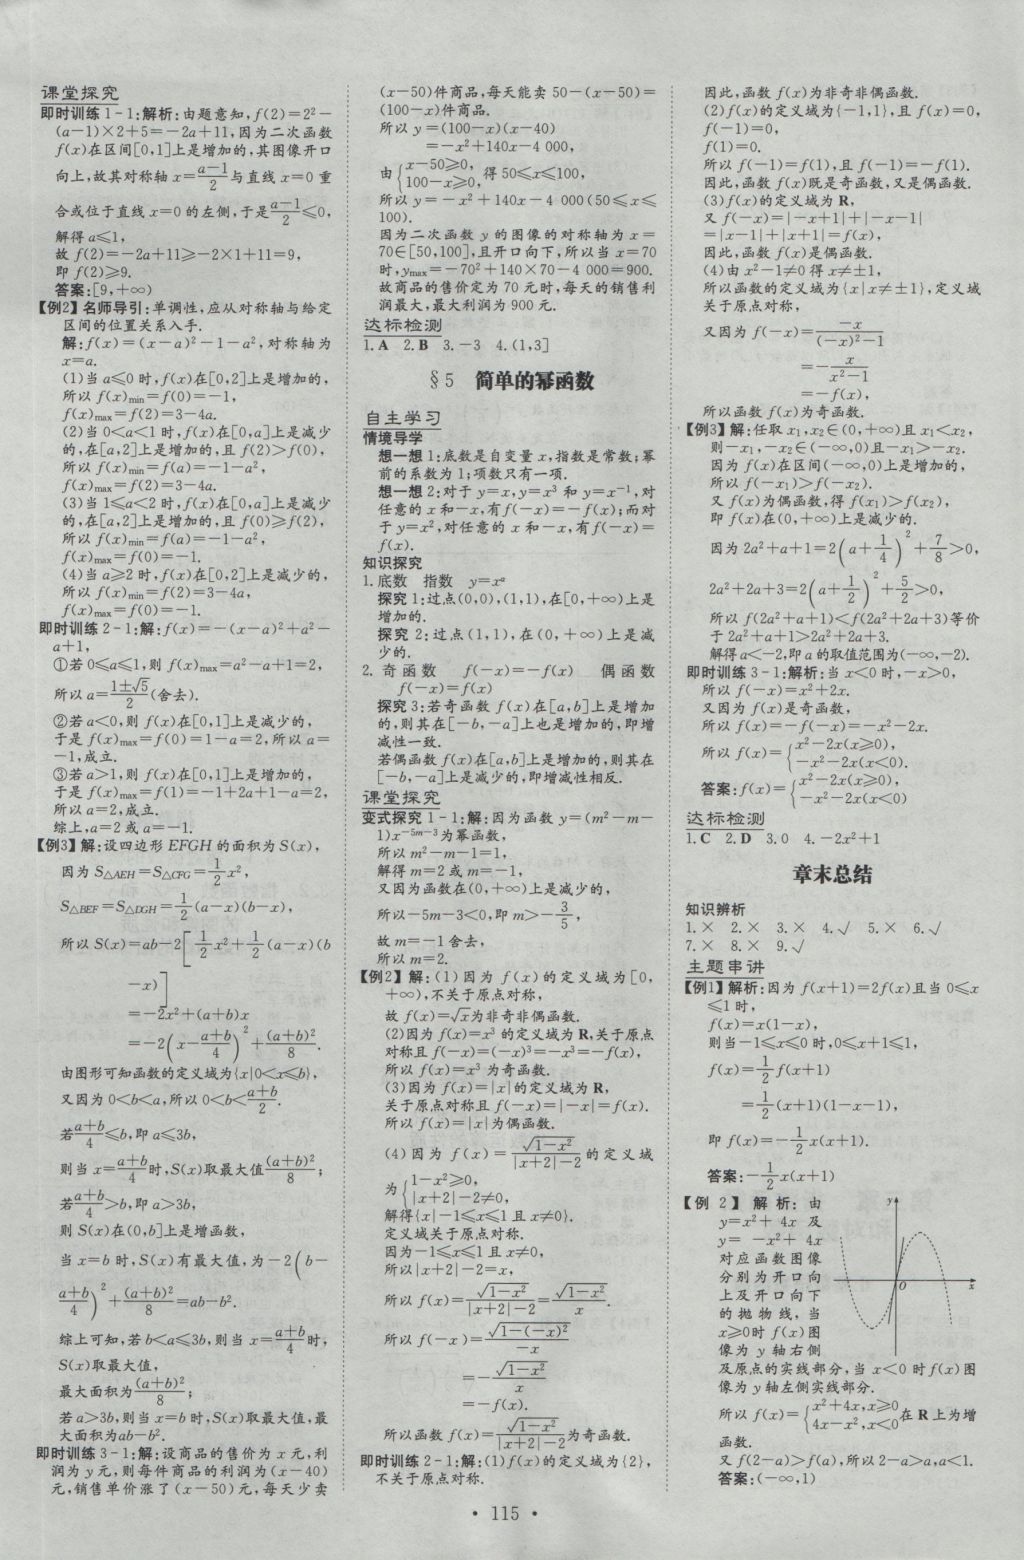 课堂探究
即时训练1-1:解析:由题意知,f(2)=2²-
(a-1)×2+5=-2a+11,因为二次函数
f(x)在区间[0,1]上是增加的,其图像开口
向上,故其对称轴x=(a-1)/2与直线x=0重
合或位于直线x=0的左侧,于是(a-1)/2≤0,
解得a≤1,
故f(2)=-2a+11≥-2×1+11=9,
即f(2)≥9.
答案:[9,+∞)
【例2】名师导引:单调性,应从对称轴与给定
区间的位置关系入手.
解:f(x)=(x-a)²-1-a²,对称轴为
x=a.
(1)当a≤0时,f(x)在[0,2]上是增加的,
所以f(x)min=f(0)=-1,
f(x)max=f(2)=3-4a.
(2)当0<a<1时,f(x)在[0,a]上是减少
的,在[a,2]上是增加的,且f(2)>f(0),
所以f(x)min=f(a)=-1-a²,
f(x)max=f(2)=3-4a.
(3)当1≤a<2时,f(x)在[0,a]上是减少
的,在[a,2]上是增加的,且f(0)≥f(2),
所以f(x)min=f(a)=-1-a²,
f(x)max=f(0)=-1.
(4)当a≥2时,f(x)在[0,2]上是减少的,
所以f(x)min=f(2)=3-4a,
f(x)max=f(0)=-1.
即时训练2-1:解:f(x)=-(x-a)²+a²-
a+1,
①若0≤a≤1,则f(x)max=a²-a+1=2,
所以a=(1±√5)/2(舍去).
②若a<0,则f(x)在[0,1]上是减少的,
于是f(x)max=f(0)=1-a=2,所以a=
-1,成立.
③若a>1,则f(x)在[0,1]上是增加的,
于是f(x)max=f(1)=-1+2a+1-a=2,
所以a=2,成立.
综上,a=2或a=-1.
【例3】解:设四边形EFGH的面积为S(x),
因为S△AEH=S△CFG=1/2x²,
S△BEF=S△DGH=1/2(a-x)(b-x),
所以S(x)=ab-2[1/2x²+1/2(a-x)(b
-x)]
=-2x²+(a+b)x
=-2(x-(a+b)/4)²+(a+b)²/8.
由图形可知函数的定义域为{x|0<x≤b},
又因为0<b<a,所以0<b<(a+b)/2.
若(a+b)/4≤b,即a≤3b,
则当x=(a+b)/4时,S(x)取最大值(a+b)²/8;
若(a+b)/4>b,即a>3b,
则S(x)在(0,b]上是增函数,
当x=b时,S(x)有最大值,为-2(b-
(a+b)/4)²+(a+b)²/8=ab-b².
综上可知,若b<a≤3b,则当x=(a+b)/4时,
S(x)取最大值,
最大面积为(a+b)²/8;
若a>3b,则当x=b时,S(x)取最大值,最
大面积为ab-b².
即时训练3-1:解:设商品的售价为x元,利
润为y元,则每件商品的利润为(x-40)
元,销售单价涨了(x-50)元,每天少卖
(x-50)件商品,每天能卖50-(x-50)=
(100-x)件商品.
所以y=(100-x)(x-40)
=-x²+140x-4 000,
由{x-50≥0,100-x≥0,得50≤x≤100,
所以y=-x²+140x-4 000(50≤x≤
100).
因为二次函数y的图像的对称轴为x=
70∈[50,100],且开口向下,所以当x=70
时,ymax=-70²+140×70-4 000=900.
故商品的售价定为70元时,每天的销售利
润最大,最大利润为900元.
达标检测
1.A 2.B 3.-3 4.(1,3]
§5 简单的幂函数
自主学习
情境导学
想一想1:底数是自变量x,指数是常数;幂
前的系数为1;项数只有一项.
想一想2:对于y=x,y=x³和y=x⁻¹,对
任意的x和-x,有f(-x)=-f(x);而对
于y=x²,对任意的x和-x,有f(-x)=
f(x).
知识探究
1.底数 指数 y=xᵅ
探究1:过点(0,0),(1,1),在[0,+∞)上是
增加的.
探究2:过点(1,1),在(0,+∞)上是减
少的.
2.奇函数 f(-x)=-f(x) 偶函数
f(-x)=f(x)
探究3:若奇函数f(x)在[a,b]上是增加
的,则其在[-b,-a]上也是增加的,即增
减性一致.
若偶函数f(x)在[a,b]上是增加的,则其在
[-b,-a]上是减少的,即增减性相反.
课堂探究
变式探究1-1:解:因为函数y=(m²-m-
1)x^(-5m-3)为幂函数,
所以m²-m-1=1,
解得m=2或m=-1,
又因为函数在(0,+∞)上是减少的,
所以-5m-3<0,即m>-3/5,
故m=-1舍去,
所以m=2.
【例2】解:(1)因为f(x)的定义域为[0,
+∞),不关于原点对称,
故f(x)=√x为非奇非偶函数.
(2)因为f(x)=x³的定义域为R,关于原点
对称且f(-x)=(-x)³=-x³=-f(x),
所以f(x)=x³为奇函数.
(3)因为f(x)=|x|的定义域为R,
关于原点对称且f(-x)=|-x|=f(x).
所以f(x)=|x|为偶函数.
(4)因为f(x)=√(1-x²)/(|x+2|-2)的定义域
为{1-x²≥0,|x+2|-2≠0,
解得{x|-1≤x≤1且x≠0}.
定义域关于原点对称.
因为-1≤x≤1且x≠0,
所以|x+2|-2=x,
所以f(x)=√(1-x²)/(|x+2|-2)=√(1-x²)/x.
所以f(-x)=√(1-(-x)²)/(-x)
=-√(1-x²)/x
=-f(x).
所以函数f(x)=√(1-x²)/(|x+2|-2)为奇函数.
即时训练2-1:解:(1)f(x)的定义域为{2},
不关于原点对称.
因此,函数f(x)为非奇非偶函数.
(2)f(x)的定义域为{-1,1},且f(x)=0,
f(-1)=0,
f(1)=0.
所以f(-1)=f(1),且f(-1)=-f(1).
因此,函数f(x)既是奇函数,又是偶函数.
(3)f(x)的定义域为R,
又f(-x)=|-x+1|+|-x-1|
=|x-1|+|x+1|=f(x),
因此,函数f(x)是偶函数.
(4)由x²-1≠0得x≠±1,
所以函数的定义域为{x|x≠±1},定义域
关于原点对称,
又因为f(-x)=-x/((-x)²-1)
=-x/(x²-1)
=-f(x),
所以函数f(x)为奇函数.
【例3】解:任取x₁,x₂∈(0,+∞)且x₁<x₂,
则-x₁,-x₂∈(-∞,0)且-x₁>-x₂.
因为f(x)在区间(-∞,0)上是增加的,
所以f(-x₁)>f(-x₂).
又f(x)为偶函数,得f(x₁)>f(x₂),
即f(x)在(0,+∞)上是减少的.
因为2a²+a+1=2(a+1/4)²+7/8>0,
2a²+2a+3=2(a+1/2)²+5/2>0,
所以f(2a²+a+1)<f(2a²+2a+3)等价
于2a²+a+1>2a²+2a+3.
解得a<-2,即a的取值范围为(-∞,-2).
即时训练3-1:解析:当x<0时,-x>0,
所以f(-x)=x²+2x.
又因为f(x)是奇函数,
所以f(x)=-f(-x)=-x²-2x.
所以f(x)={x²-2x(x≥0),-x²-2x(x<0).
答案:f(x)={x²-2x(x≥0),-x²-2x(x<0)
达标检测
1.C 2.D 3.0 4.-2x²+1
章末总结
知识辨析
1.× 2.× 3.× 4.√ 5.× 6.√
7.× 8.× 9.√
主题串讲
【例1】解析:因为f(x+1)=2f(x)且当0≤x
≤1时,
f(x)=x(1-x),
则当-1≤x≤0时,0≤x+1≤1,
f(x)=1/2f(x+1)
=1/2(x+1)(1-x-1),
即f(x)=-1/2x(x+1).
答案:-1/2x(x+1)
【例2】解析:由
y=x²+4x及
y=-x²+4x
对应函数图像
分别为开口向
上及开口向下
的抛物线,当
x≥0时f(x)图
像为y轴右侧
及原点的实线部分,当x<0时f(x)图
像为y轴左侧实线部分.
所以f(x)={x²+4x,x≥0 4x-x²,x<0在R上为增
函数.
又f(2-a)>f(a),所以2-a>a,a<1.
答案:(-∞,1)
y
O
x
• 115 •